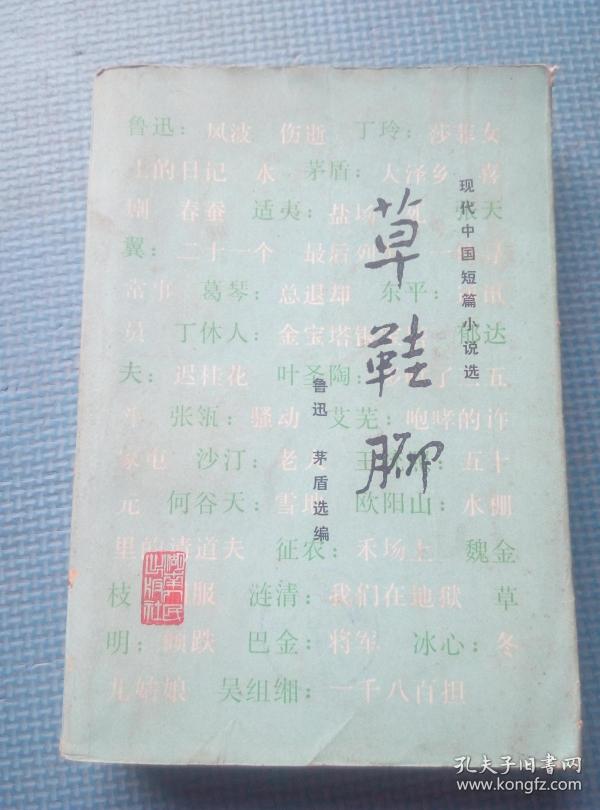 草鞋脚
现代中国短篇小说选
鲁迅 茅盾选编
鲁迅：风波 伤逝 丁玲：莎菲女
士的日记 水 茅盾：大泽乡 喜
剧 春蚕 适夷：盐场 死 张天
翼：二十一个 最后列 一 寻
常事 葛琴：总退却 东平：
员 丁休人：金宝塔银 郁达
夫：迟桂花 叶圣陶： 了三五
斗 张瓴：骚动 艾芜：咆哮的许
家屯 沙汀：老人 王 五十
元 何谷天：雪地 欧阳山：水棚
里的清道夫 征农：禾场上 魏金
枝： 服 涟清：我们在地狱 草
明：倾跌 巴金：将军 冰心：冬
儿姑娘 吴组缃：一千八百担
湖南人民出版社
孔夫子旧书网
www.kongfz.com